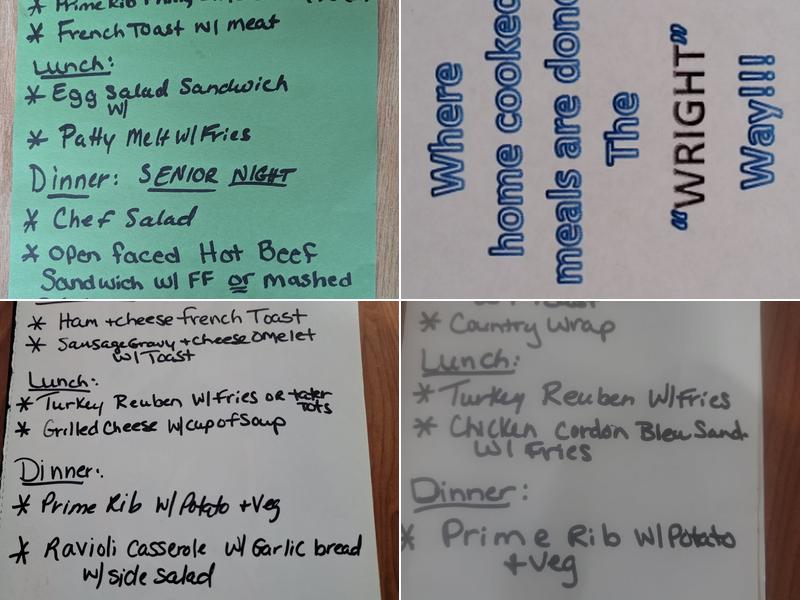 * Prime Rib
* French Toast w/ meat
Lunch:
* Egg Salad Sandwich
w/
* Patty Melt w/ Fries
Dinner: SENIOR NIGHT
* Chef Salad
* Open faced Hot Beef
Sandwich w/ FF or mashed
Where
home cooked
meals are done
The
"WRIGHT"
Way!!!
* Ham + cheese French Toast
* Sausage Gravy + cheese Omelet
w/ Toast
Lunch:
* Turkey Reuben w/ Fries or tater
Tots
* Grilled Cheese w/ cup of Soup
Dinner:
* Prime Rib w/ Potato + Veg
* Ravioli Casserole w/ Garlic bread
w/ side salad
* Country Wrap
Lunch:
* Turkey Reuben w/ Fries
* Chicken Cordon Bleu Sand.
w/ Fries
Dinner:
* Prime Rib w/ Potato
+ Veg